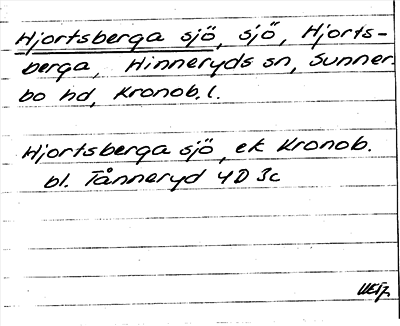 Hjortsberga sjö, sjö, Hjorts-
berga, Hinneryds sn, Sunner-
bo hd, Kronob. l.
Hjortsberga sjö, ek Kronob.
bl. Tånneryd 4D 3c